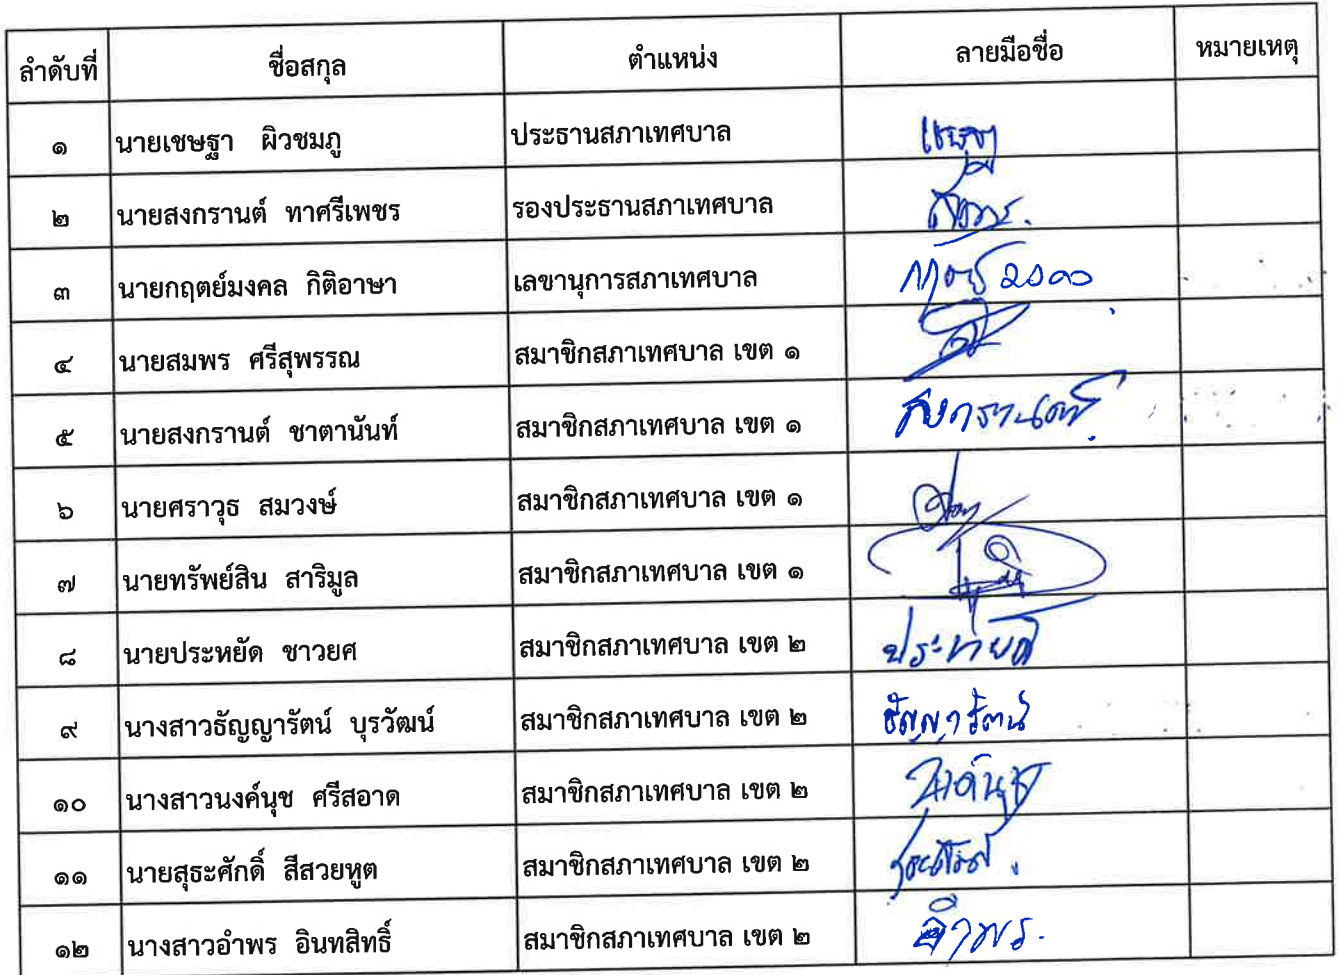 ลำดับที่ ชื่อสกุล ตำแหน่ง ลายมือชื่อ หมายเหตุ
๑ นายเชษฐา ผิวชมภู ประธานสภาเทศบาล
๒ นายสงกรานต์ ทาศรีเพชร รองประธานสภาเทศบาล
๓ นายกฤตย์มงคล กิติอาษา เลขานุการสภาเทศบาล
๔ นายสมพร ศรีสุพรรณ สมาชิกสภาเทศบาล เขต ๑
๕ นายสงกรานต์ ชาตานันท์ สมาชิกสภาเทศบาล เขต ๑ สงกรานต์
๖ นายศราวุธ สมวงษ์ สมาชิกสภาเทศบาล เขต ๑
๗ นายทรัพย์สิน สาริมูล สมาชิกสภาเทศบาล เขต ๑
๘ นายประหยัด ชาวยศ สมาชิกสภาเทศบาล เขต ๒ ประหยัด
๙ นางสาวธัญญารัตน์ บุรวัฒน์ สมาชิกสภาเทศบาล เขต ๒ ธัญญารัตน์
๑๐ นางสาวนงค์นุช ศรีสอาด สมาชิกสภาเทศบาล เขต ๒ นงค์นุช
๑๑ นายสุธะศักดิ์ สีสวยหูต สมาชิกสภาเทศบาล เขต ๒
๑๒ นางสาวอำพร อินทสิทธิ์ สมาชิกสภาเทศบาล เขต ๒ อำพร